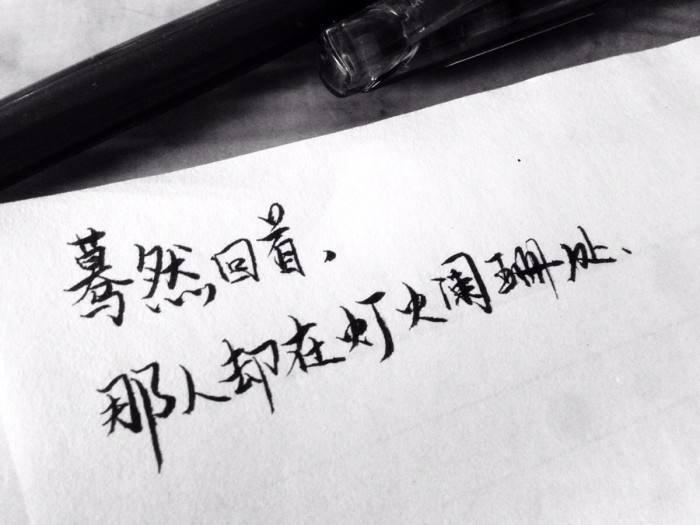 蓦然回首，
那人却在灯火阑珊处、